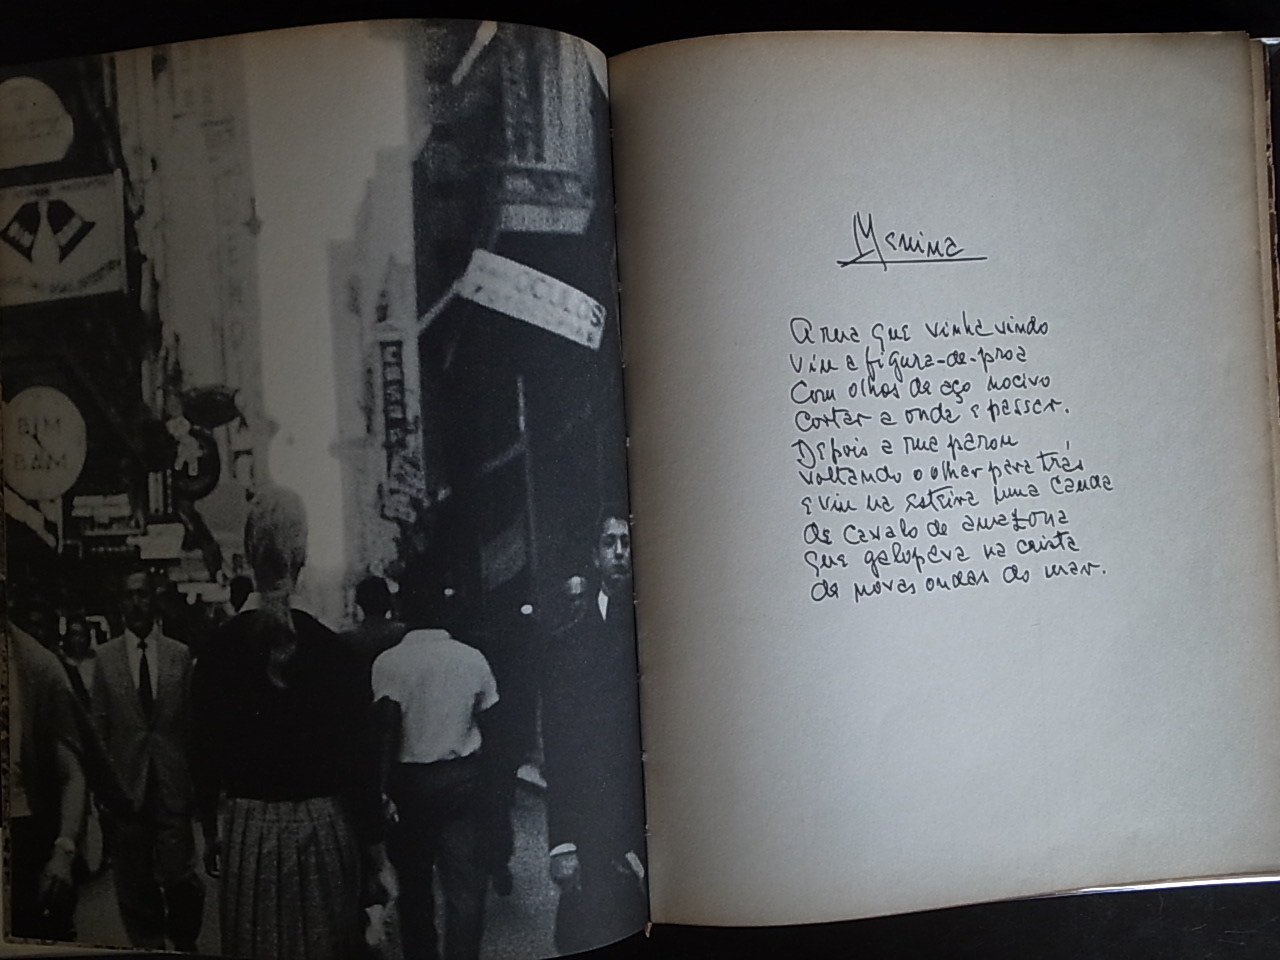 BIM
BAM
OCULOS
Menina
A rua que vinha vindo
Viu a figura-de-proa
Com olhos de aço nocivo
Cortar a onda e passar.
Depois a rua parou
voltando o olhar para trás
e viu na esteira uma cauda
de cavalo de amazona
que galopava na crista
de novas ondas do mar.